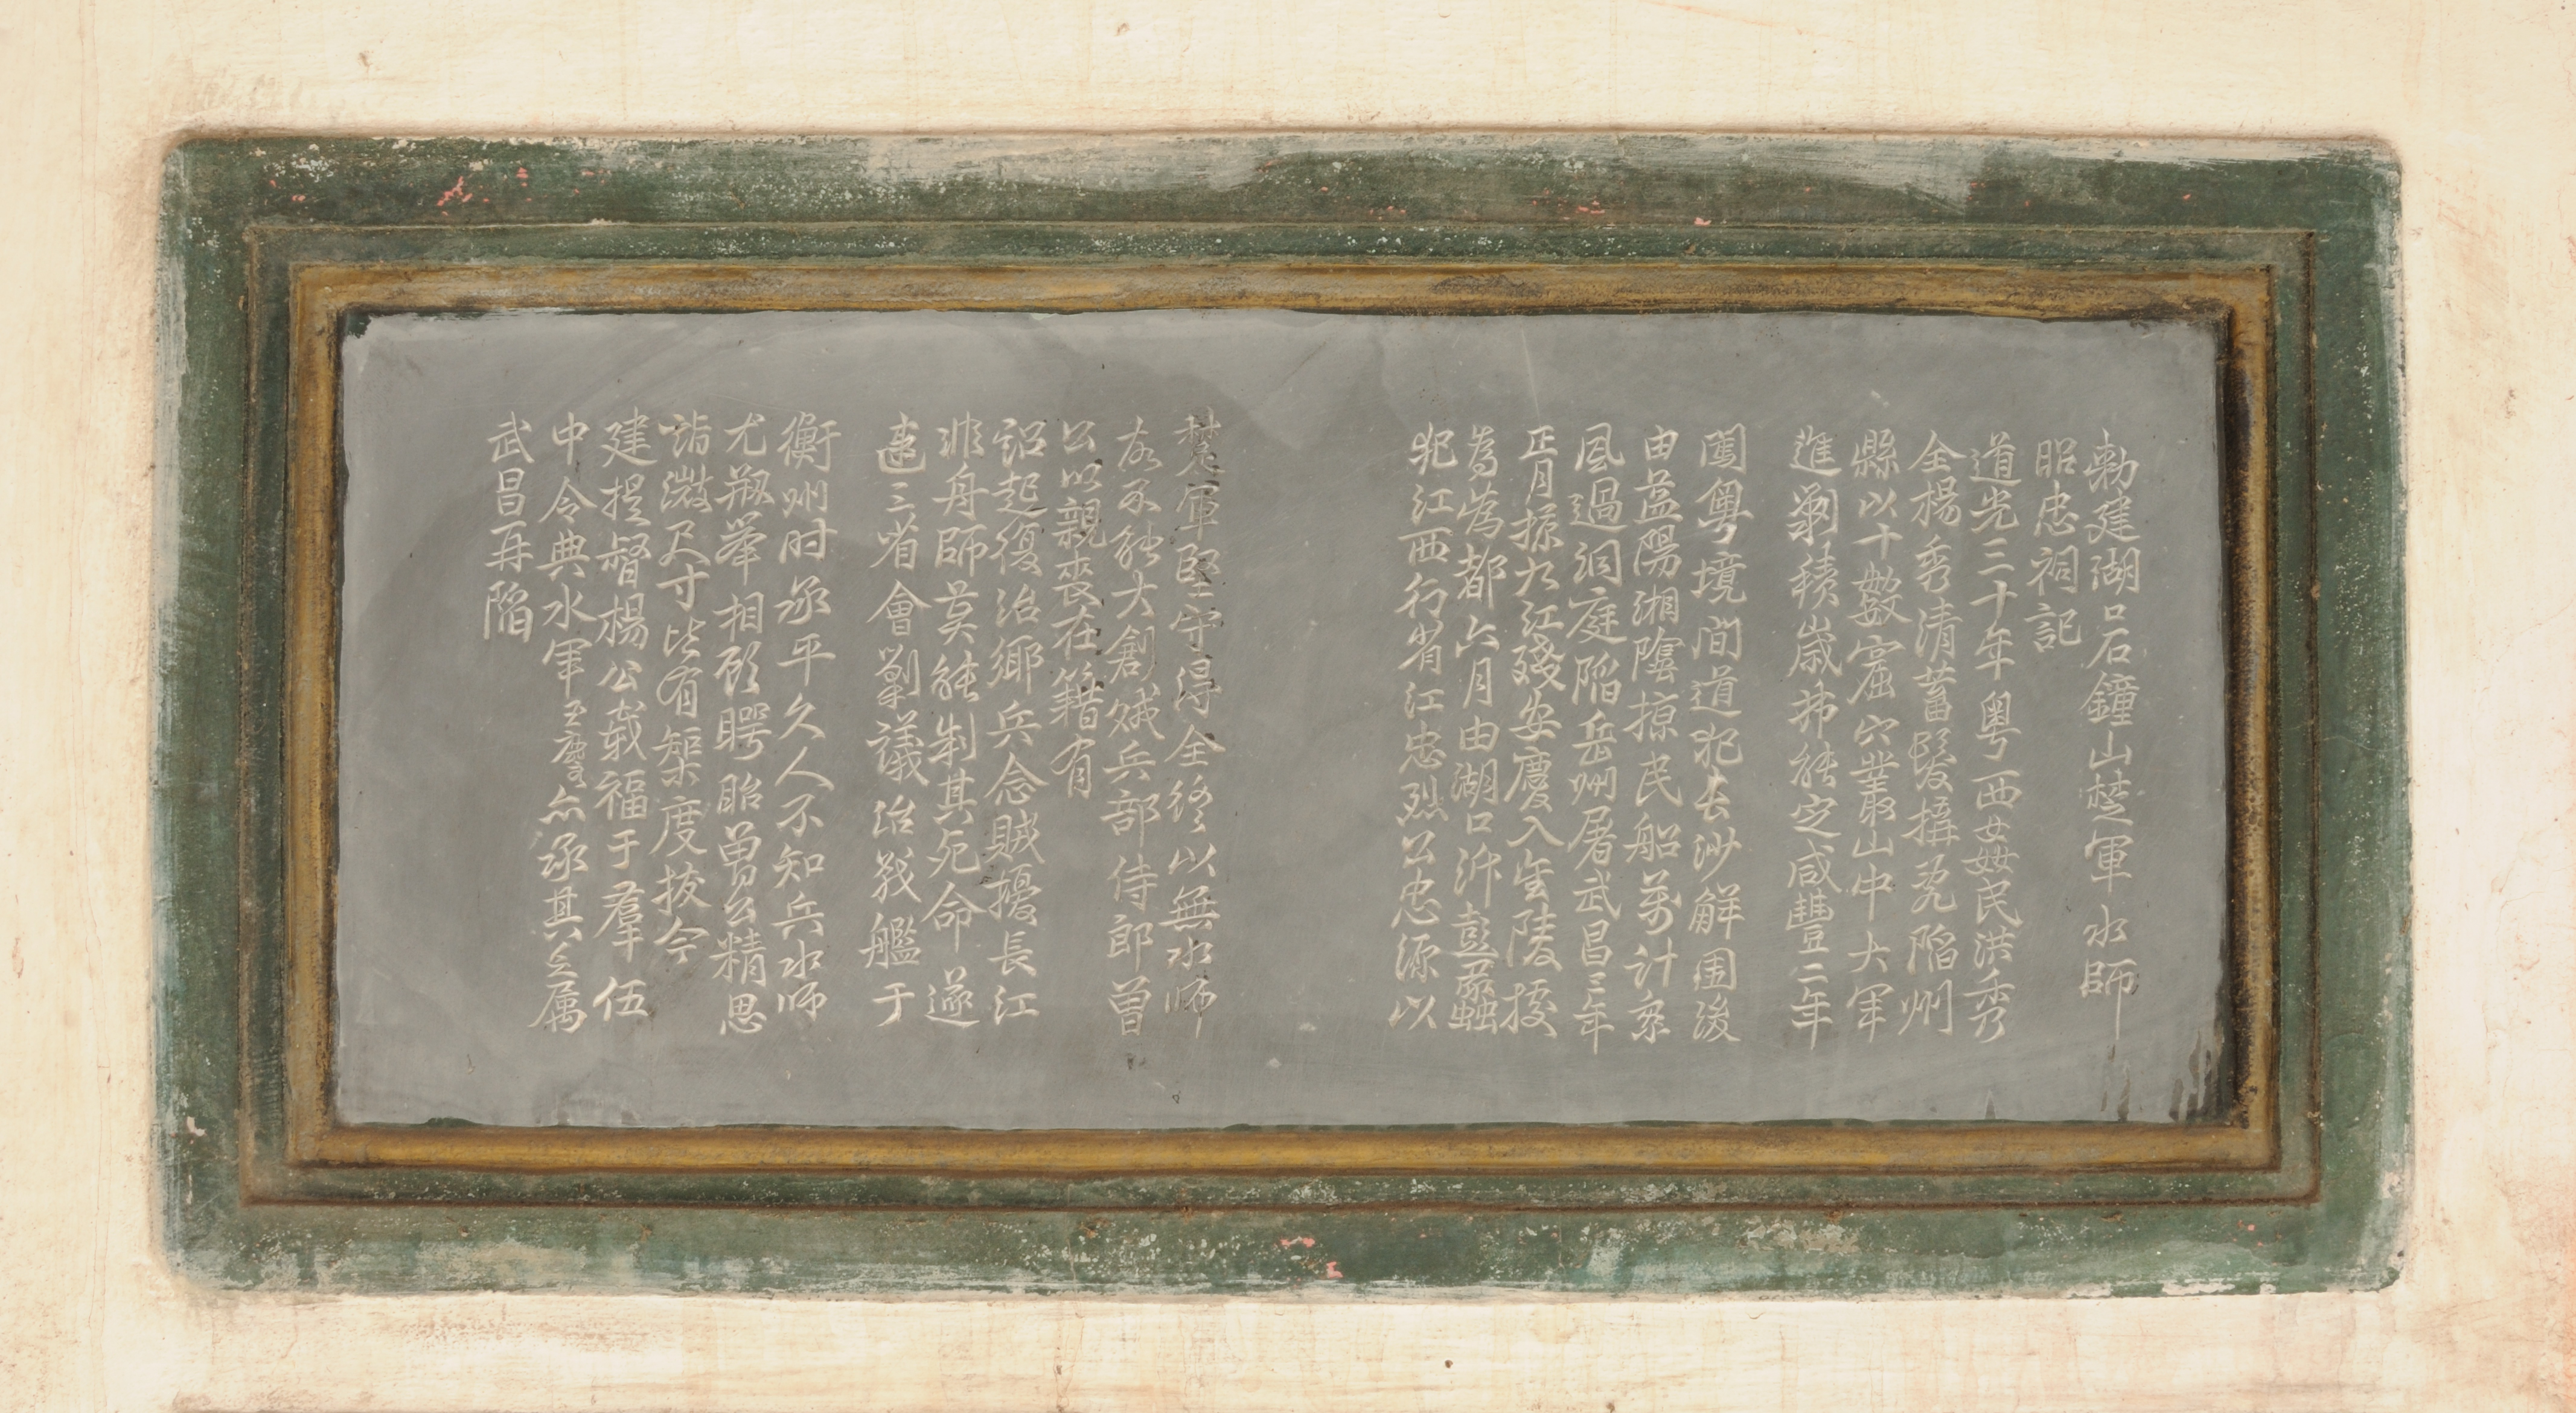 勅建湖口石鐘山楚軍水師
昭忠祠記
道光三十年粤西姦民洪秀
全楊秀清蓄髮搆亂陷州
縣以十數窟穴叢山中大軍
進勦積歲弗能定咸豐二年
闖粤境間道犯長沙解圍後
由益陽湘陰掠民船萬計乘
風過洞庭陷岳州屠武昌三年
正月掠九江殘安慶入金陵據
為偽都六月由湖口泝彭蠡
犯江西行省江忠烈公忠源以
楚軍堅守得全終以無水師
故不能大創賊兵部侍郎曾
公以親喪在籍有
詔起復治鄉兵念賊擾長江
非舟師莫能制其死命遂
建三省會勦議治戰艦于
衡州时承平久人不知兵水师
尤剏舉相顧腭眙曾公精思
詣微尺寸皆有榘度拔今
建提督楊公載福于羣伍
中令典水軍玉麐亦承其乏属
武昌再陷